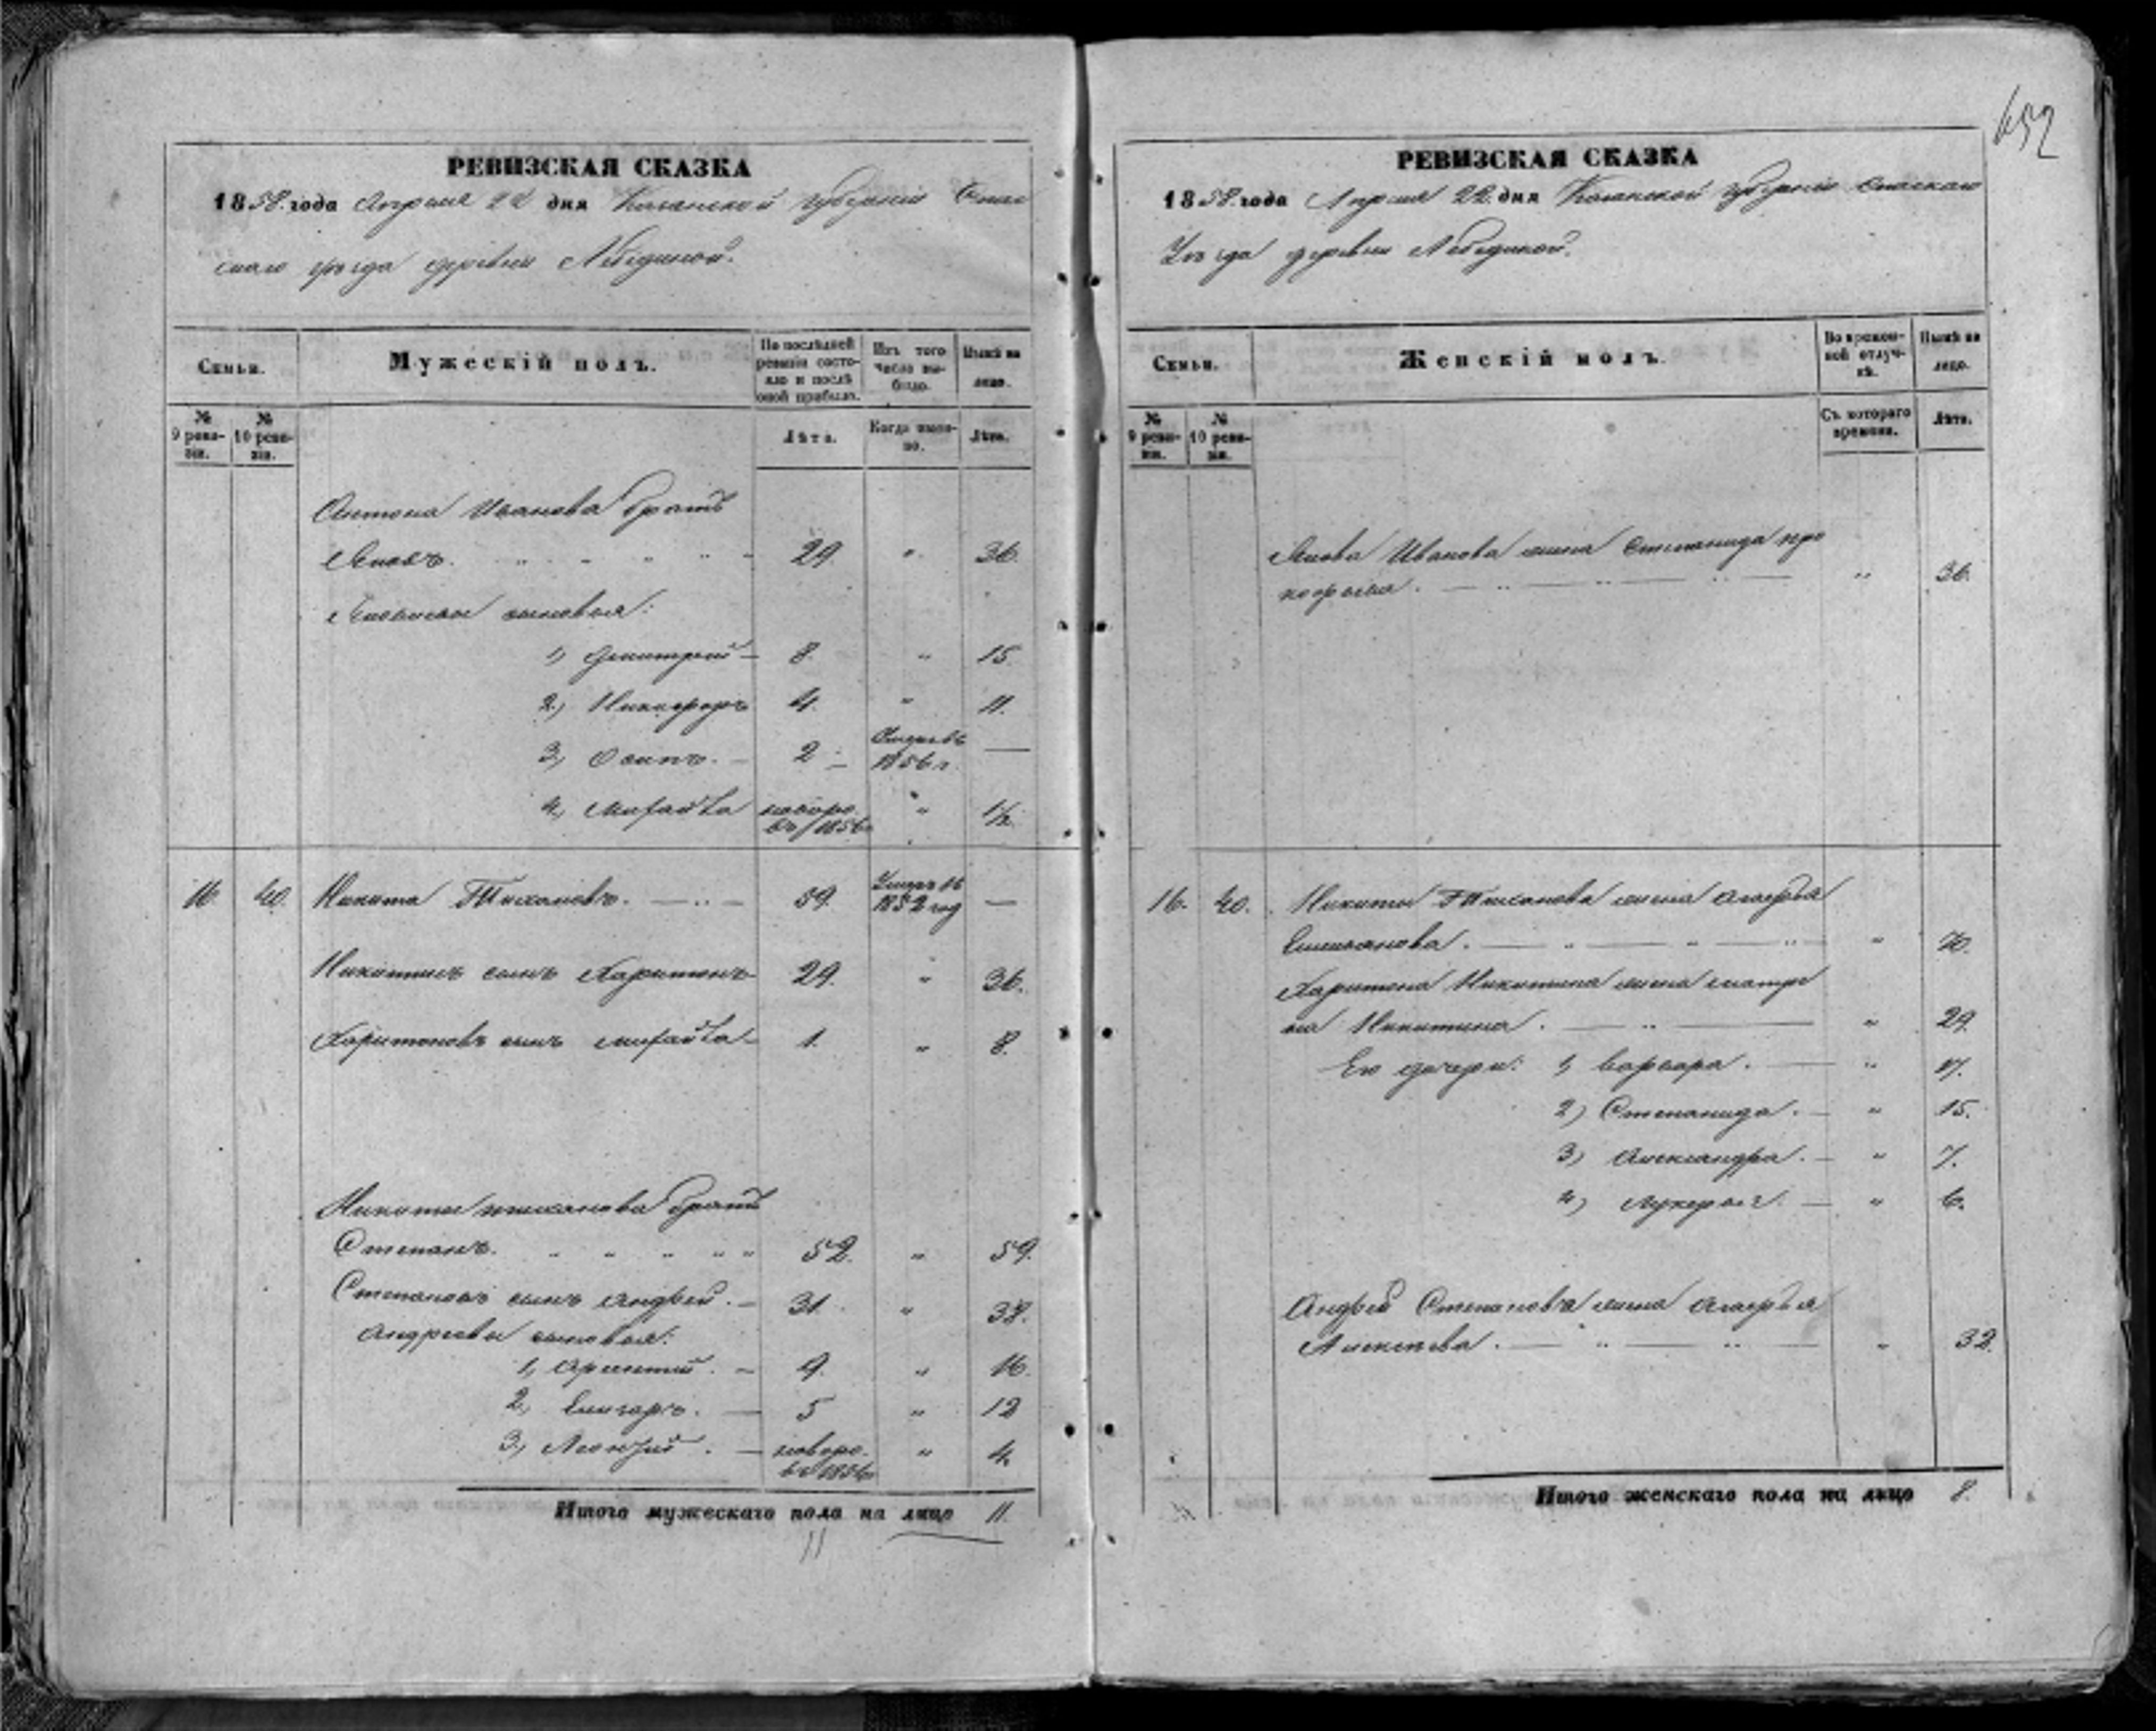 652
РЕВИЗСКАЯ СКАЗКА
1858 года Апреля 22 дня Казанской губернии Спас
скаго уѣзда деревни Лебединой.
Семьи.
Мужескій полъ.
По послѣдней ревизіи состояло и послѣ оной прибыло.
Изъ того числа выбыло.
Нынѣ на лицо.
№ 9 ревизіи.
№ 10 ревизіи.
Лѣта.
Когда именно.
Лѣта.
Антона Иванова братъ
Яковъ. 29 " 36.
Яковлевы сыновья:
1, Дмитрей 8. " 15.
2, Никифоръ 4. " 11.
3, Осипъ. 2 1856 г. —
4, Михайла новоро. въ 1856 " 1½
16 40. Никита Тихановъ. 59. Умеръ въ 1852 год —
Никитинъ сынъ Харитонъ 29. " 36.
Харитоновъ сынъ Михайла 1. " 8.
Никиты Тиханова братъ
Степанъ. 52. " 59.
Степановъ сынъ Андрей. 31. " 38.
Андреевы сыновья:
1, 9. " 16.
2, 5 " 12
3, новоро. " 4.
Итого мужескаго пола на лицо 11.
11
РЕВИЗСКАЯ СКАЗКА
1858 года Апреля 22 дня Казанской губерніи Спаскаго
Уѣзда деревни Лебединой.
Семьи.
Женскій полъ.
Во временной отлучкѣ.
Нынѣ на лицо.
№ 9 ревизіи.
№ 10 ревизіи.
Съ котораго времени.
Лѣта.
Якова Иванова жена Степанида про
кофьева. " 36.
16. 40. Никиты Тиханова жена Агафья
Емельянова. " 70.
Харитона Никитина жена Матре
на Никитина. " 29.
Его дочери: 1, Варвара. " 17.
2) Степанида. " 15.
3) Александра. " 7.
4) Лукерья. " 6.
Андрея Степанова жена Агафья
Алексеева. " 32.
Итого женскаго пола на лицо 8.